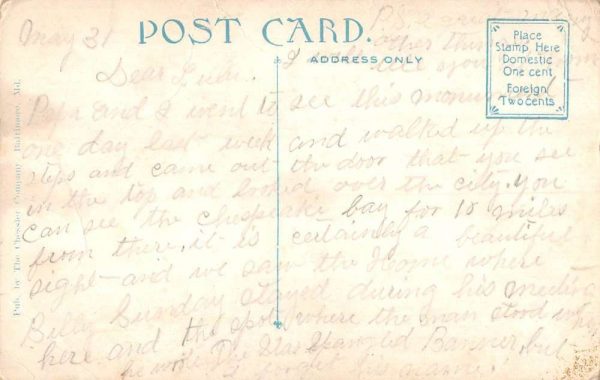 May 31
POST CARD.
ADDRESS ONLY
Place
Stamp Here
Domestic
One cent
Foreign
Two cents
Pub. by The Chessler Company, Baltimore, Md.
P.S.
other
I will tell you
Dear
Papa and I went to see this monument
one day last week and walked up the
steps and came out the door that you see
in the top and looked over the city. you
can see the Chespeake bay for 10 miles
from there. it is certainly a beautiful
sight and we saw the Home where
Billy Sunday stayed during his meeting
here and the spot where the man stood who
wrote The Star Spangled Banner, but
I forget his name.